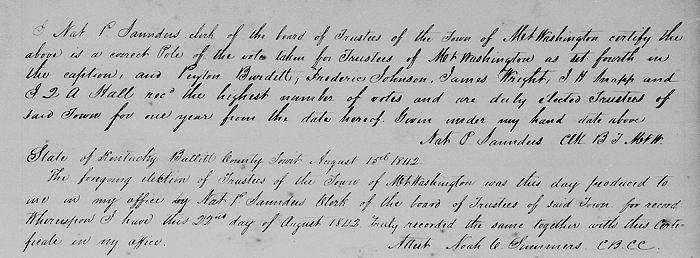 I Nat P. Saunders clerk of the board of Trustees of the Town of Mt Washington certify the
above is a correct Pole of the vote taken for Trustees of Mt Washington as set fourth in
the caption, and Peyton Burdett, Frederic Johnson, James Wright, J H Knapp and
J Q A Hall, recd the highest number of votes and are duly elected Trustees of
said Town for one year from the date hereof. Given under my hand date above
Nat P. Saunders Clk B T Mt W.
State of Kentucky Bullitt County Towit August 15th 1842.
The foregoing election of Trustees of the Town of Mt Washington was this day produced to
me in my office by Nat P. Saunders Clerk of the board of Trustees of said Town for record
Whereupon I have this 22nd day of August 1842 Truly recorded the same together with this Certi-
ficate in my office.
Attest Noah C Summers C.B.C.C.